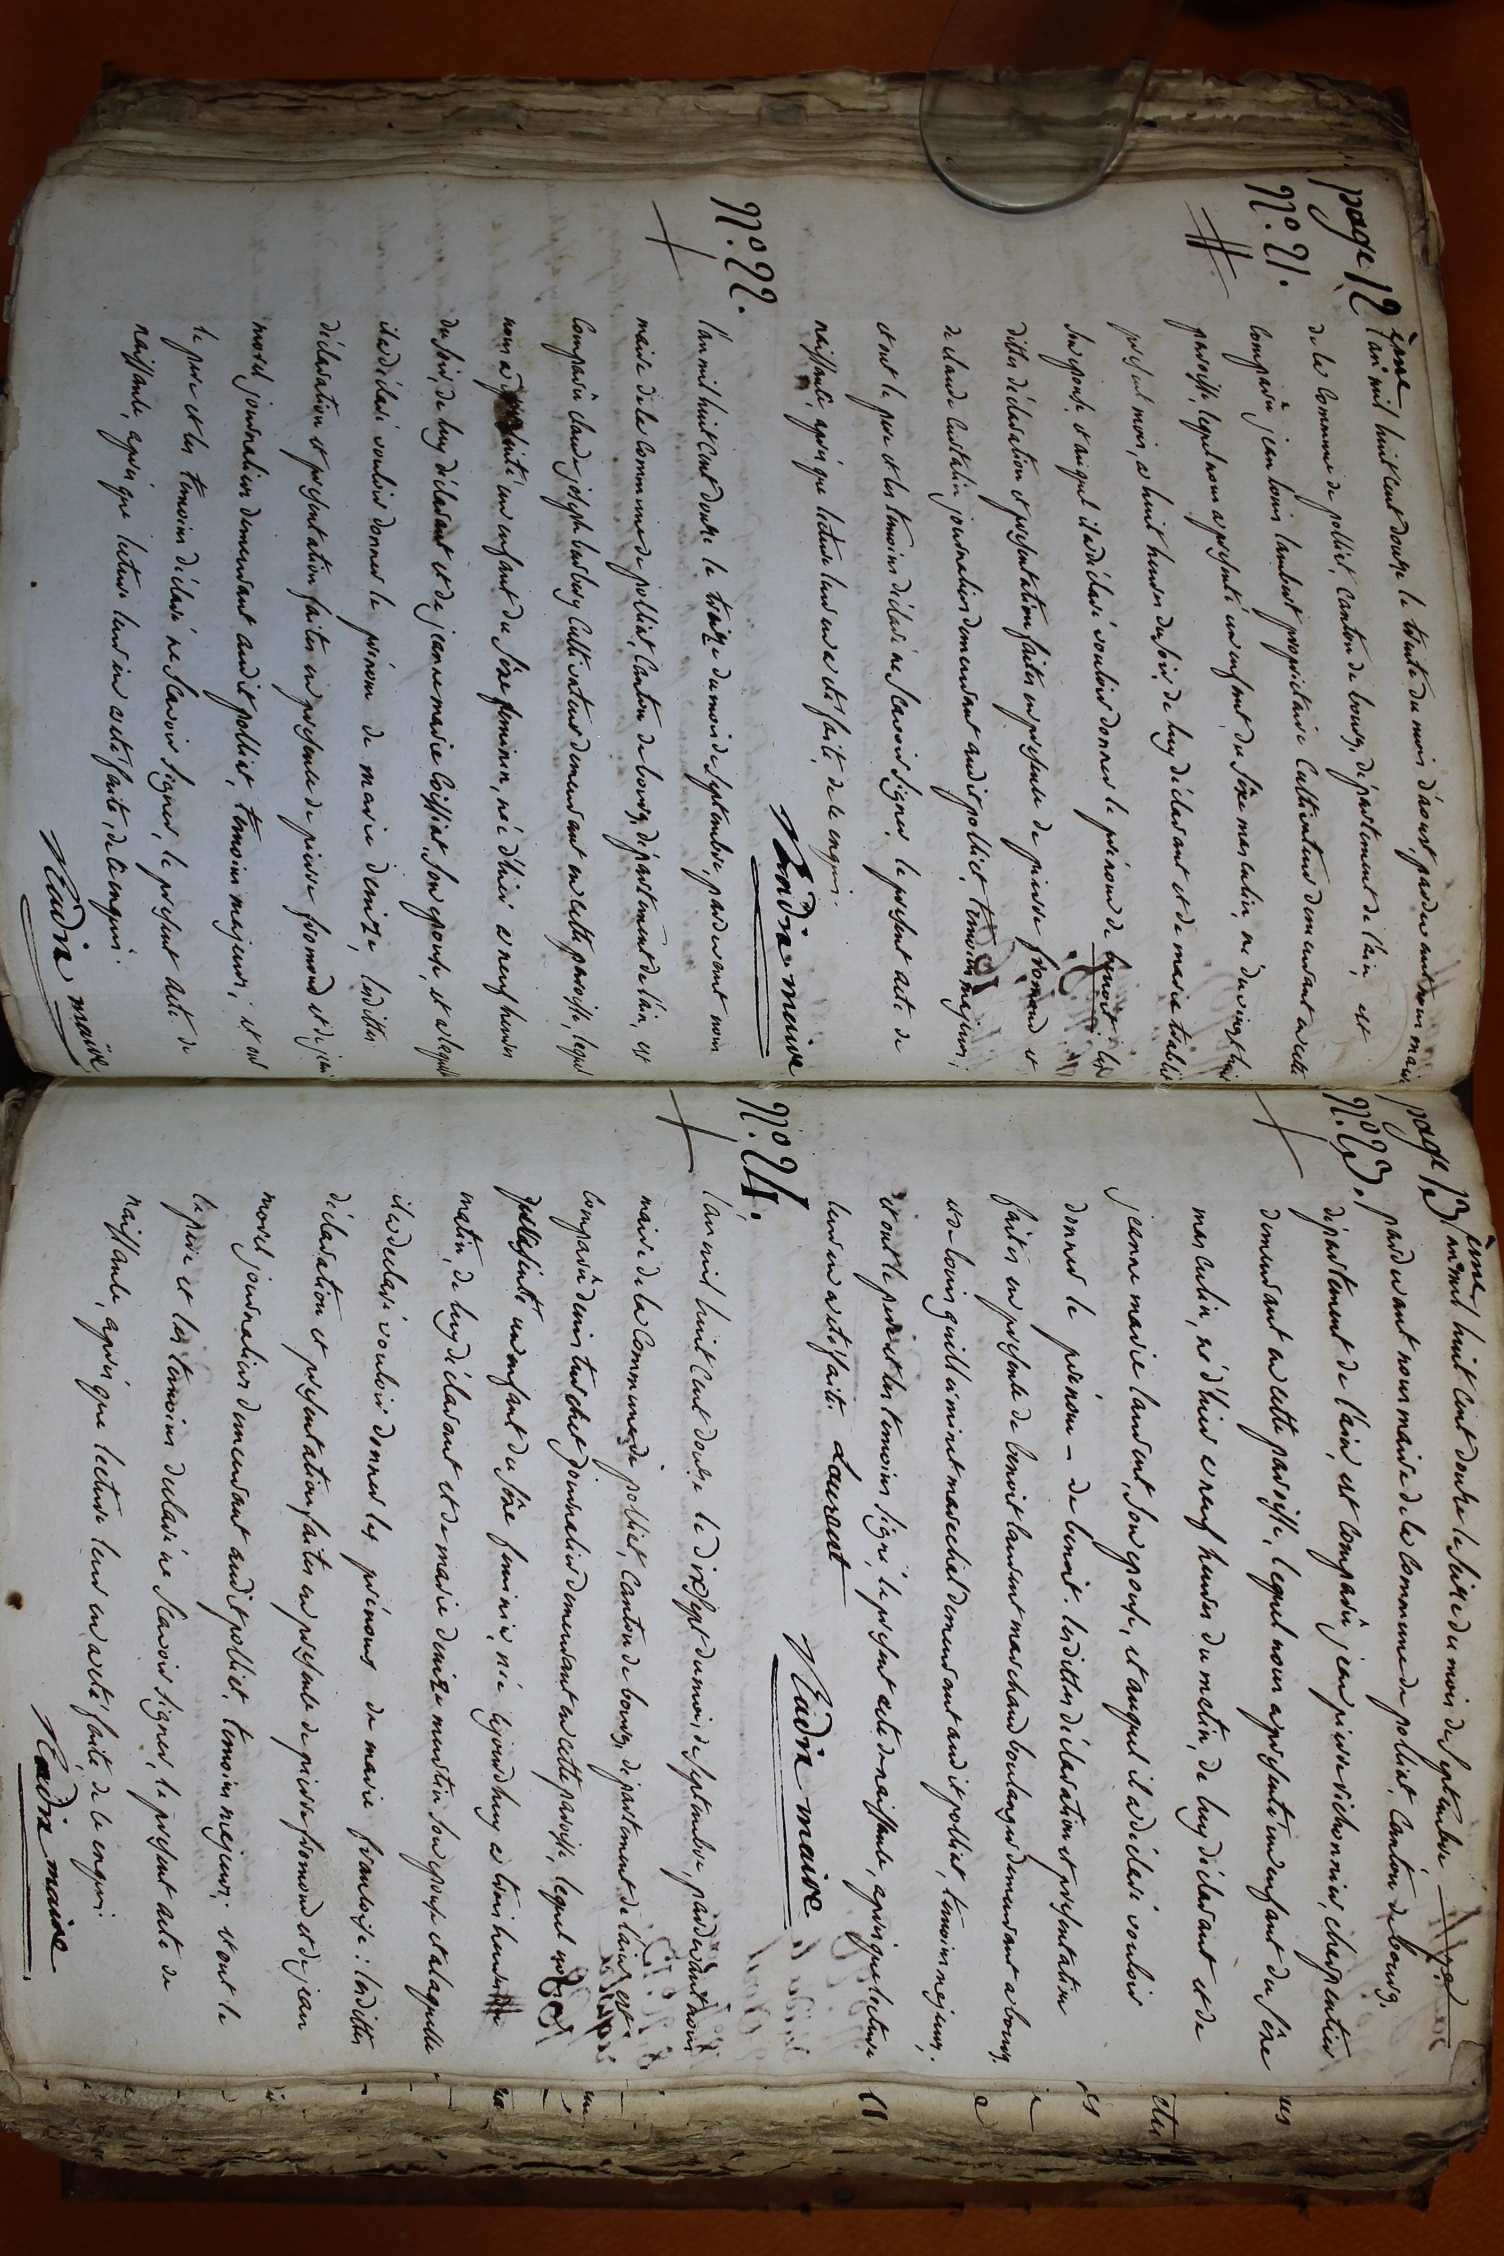 page 12ème
N.º 21.
L'an mil huit cent douze le trente du mois d'aoust, pardevant nous maire
de la Commune de polliat, Canton de bourg, département de l'ain, est
comparu jean louis lambert propriétaire Cultivateur demeurant en cette
paroisse, lequel nous a présenté un enfant du sêxe masculin, né du vingt huit
présent mois, a huit heures du soir, de luy déclarant et de marie
son epouse, et auquel il a déclaré vouloir donner le prénom de benoit; les
dittes déclaration et présentation faites en présence de pierre fromond et
de claude journalier demeurant audit polliat, temoins majeurs;
et ont le pere et les temoins déclaré ne scavoir signer, le present acte de
naissance, après que lecture leur en a eté fait, de ce enquis.
maire
N.º 22.
L'an mil huit cent douze le treize du mois de septembre, pardevant nous
maire de la Commune de polliat, Canton de bourg, département de l'ain, est
Comparu claude joseph Cultivateur demeurant en cette paroisse, lequel
nous a présenté un enfant du sêxe feminin, née d'hier a neuf heures
du soir, de luy déclarant et de jeanne marie son epouse, et a laquelle
il a déclaré vouloir donner le prénom de marie denize, lesdittes
déclaration et présentation faites en présence de pierre fromond et de jean
morel journaliers demeurant audit polliat, temoins majeurs, et ont
le pere et les temoins déclaré ne scavoir signer, le present acte de
naissance, après que lecture leur en a eté faite, de ce enquis.
maire
page 13ème
N.º 23.
L'an mil huit cent douze le seize du mois de septembre
pardevant nous maire de la Commune de polliat, Canton de bourg,
département de l'ain, est comparu jean pierre charpentier
demeurant en cette paroisse, lequel nous a présenté un enfant du sêxe
masculin, né d'hier a neuf heures du matin, de luy déclarant et de
jeanne marie laurent, son epouse, et auquel il a déclaré vouloir
donner le prénom — de benoit. lesdittes déclaration et présentation
faites en présence de benoit laurent marchand boulanger demeurant a bourg
et louis marechal demeurant audit polliat, temoins majeurs,
et ont le pere et les temoins signé, le present acte de naissance, après que lecture
leur en a eté faite. Laurent
maire
N.º 24.
L'an mil huit cent douze le dixsept du mois de septembre, pardevant nous
maire de la Commune de polliat, Canton de bourg, département de l'ain, est
comparu denis journalier demeurant en cette paroisse, lequel nous a
présenté un enfant du sêxe feminin, née lejourd'huy a trois heures
matin, de luy déclarant et de marie denize son epouse et a laquelle
il a déclaré vouloir donner les prénoms de marie françoise: lesdittes
déclaration et présentation faites en présence de pierre fromond et de jean
morel journaliers demeurant audit polliat, temoins majeurs, et ont le
le pere et les temoins déclaré ne scavoir signer, le present acte de
naissance, après que lecture leur en a eté faite, de ce enquis.
maire